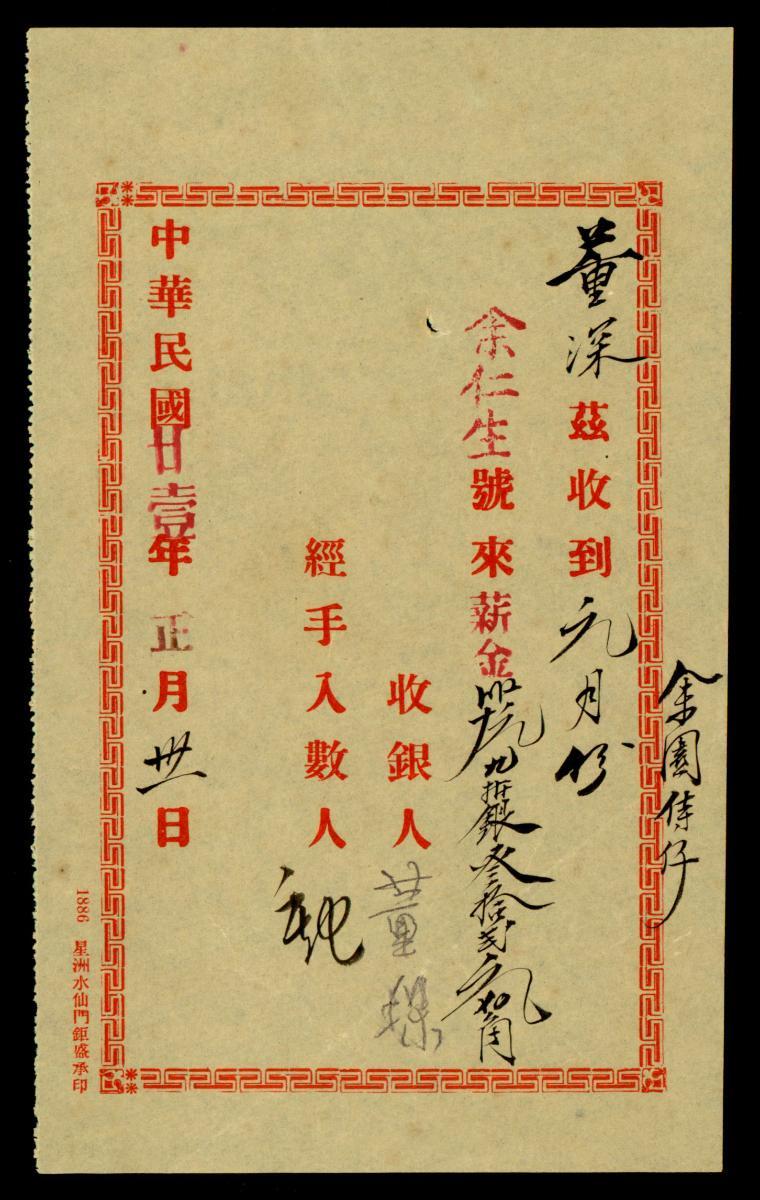 余園侍仔
董深茲收到元月份
余仁生號來薪金九折銀叁拾弍元四角
收銀人董深
經手入數人
中華民國廿壹年正月卅一日
1886 星洲水仙門鉅盛承印